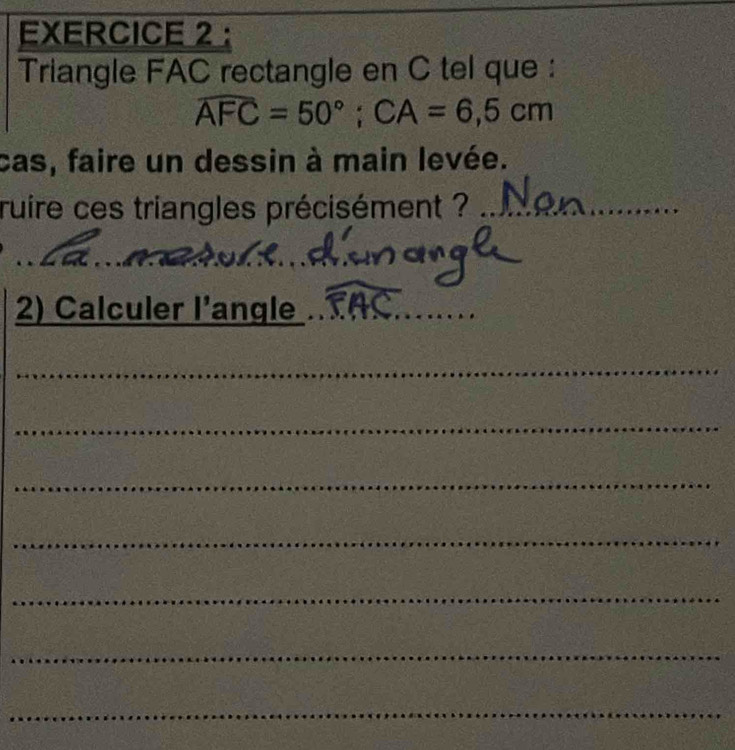 EXERCICE 2 :
Triangle FAC rectangle en C tel que :
AFC = 50° ; CA = 6,5 cm
cas, faire un dessin à main levée.
ruire ces triangles précisément ? ..Non..........
..La..mesure..d'un angle
2) Calculer l'angle ..FAC........